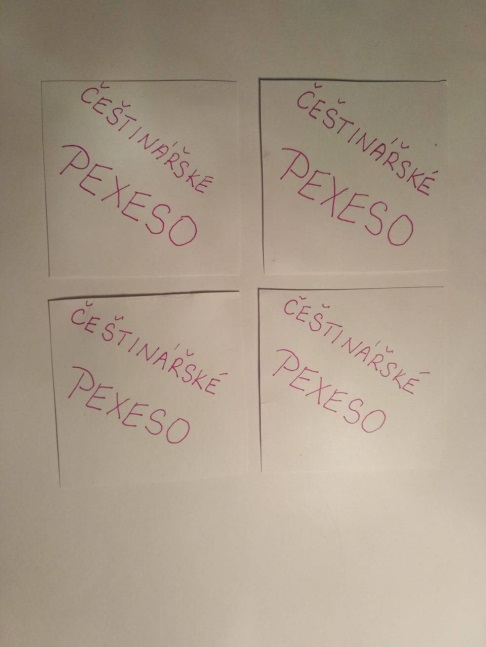 ČEŠTINÁŘSKÉ
PEXESO
ČEŠTINÁŘSKÉ
PEXESO
ČEŠTINÁŘSKÉ
PEXESO
ČEŠTINÁŘSKÉ
PEXESO